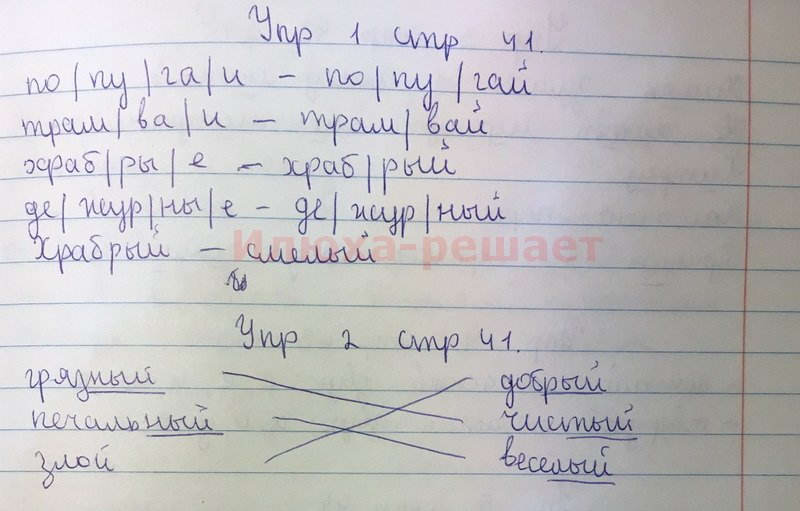 Упр 1 стр 41.
по|пу|га|и - по|пу|гай
трам|ва|и - трам|вай
храб|ры|е - храб|рый
де|жур|ны|е - де|жур|ный
Храбрый - смелый
Илюха-решает
Упр 2 стр 41.
грязный добрый
печальный чистый
злой веселый